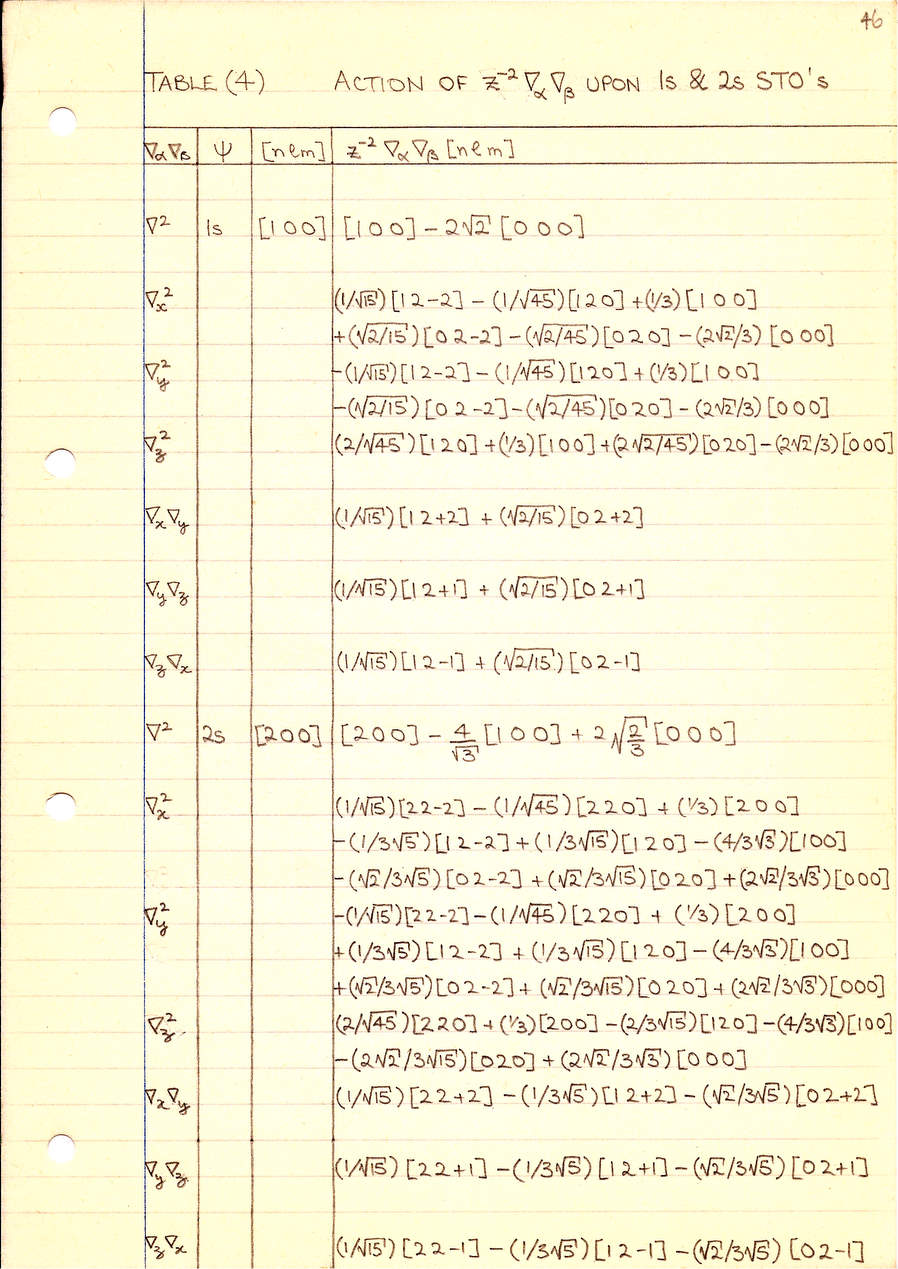 46
TABLE (4) ACTION OF z⁻² ∇α ∇β UPON 1s & 2s STO's
∇α ∇β ψ [n l m] z⁻² ∇α ∇β [n l m]
∇² 1s [1 0 0] [1 0 0] − 2√2 [0 0 0]
∇x² (1/√15) [1 2 −2] − (1/√45) [1 2 0] + (1/3) [1 0 0]
+ (√2/15) [0 2 −2] − (√2/45) [0 2 0] − (2√2/3) [0 0 0]
∇y² −(1/√15) [1 2 −2] − (1/√45) [1 2 0] + (1/3) [1 0 0]
−(√2/15) [0 2 −2] − (√2/45) [0 2 0] − (2√2/3) [0 0 0]
∇z² (2/√45) [1 2 0] + (1/3) [1 0 0] + (2√2/45) [0 2 0] − (2√2/3) [0 0 0]
∇x ∇y (1/√15) [1 2 +2] + (√2/15) [0 2 +2]
∇y ∇z (1/√15) [1 2 +1] + (√2/15) [0 2 +1]
∇z ∇x (1/√15) [1 2 −1] + (√2/15) [0 2 −1]
∇² 2s [2 0 0] [2 0 0] − 4/√3 [1 0 0] + 2√2/3 [0 0 0]
∇x² (1/√15) [2 2 −2] − (1/√45) [2 2 0] + (1/3) [2 0 0]
−(1/3√5) [1 2 −2] + (1/3√15) [1 2 0] − (4/3√3) [1 0 0]
−(√2/3√5) [0 2 −2] + (√2/3√15) [0 2 0] + (2√2/3√3) [0 0 0]
∇y² −(1/√15) [2 2 −2] − (1/√45) [2 2 0] + (1/3) [2 0 0]
+ (1/3√5) [1 2 −2] + (1/3√15) [1 2 0] − (4/3√3) [1 0 0]
+ (√2/3√5) [0 2 −2] + (√2/3√15) [0 2 0] + (2√2/3√3) [0 0 0]
∇z² (2/√45) [2 2 0] + (1/3) [2 0 0] − (2/3√15) [1 2 0] − (4/3√3) [1 0 0]
−(2√2/3√15) [0 2 0] + (2√2/3√3) [0 0 0]
∇x ∇y (1/√15) [2 2 +2] − (1/3√5) [1 2 +2] − (√2/3√5) [0 2 +2]
∇y ∇z (1/√15) [2 2 +1] − (1/3√5) [1 2 +1] − (√2/3√5) [0 2 +1]
∇z ∇x (1/√15) [2 2 −1] − (1/3√5) [1 2 −1] − (√2/3√5) [0 2 −1]